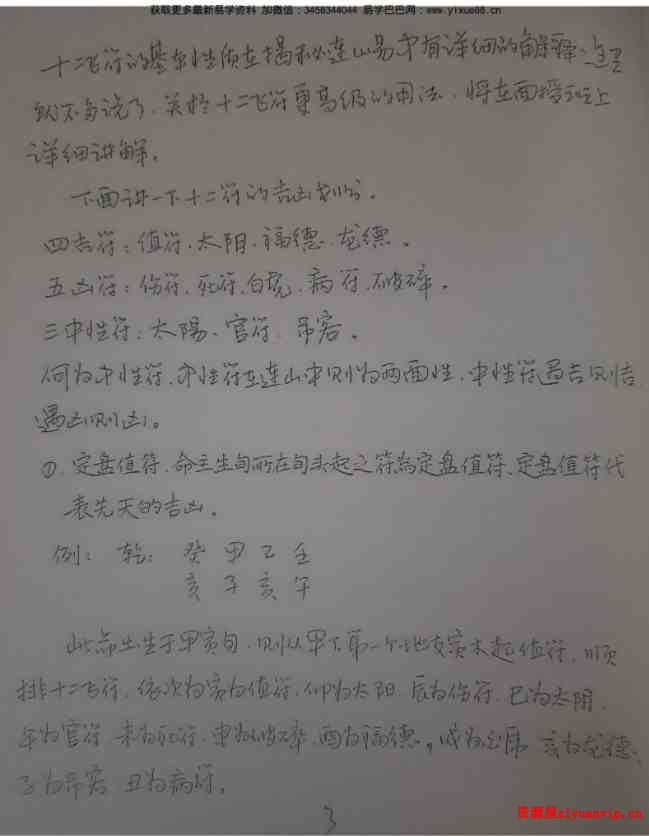 获取更多最新易学资料 加微信：3456344044 易学巴巴网：www.yixue88.cn
十二飞符的基本性质在揭秘连山易中有详细的解释，这里
就不多说了，关于十二飞符更高级的用法，将在面授班上
详细讲解。
下面讲一下十二符的吉凶划分。
四吉符：值符、太阳、福德、龙德。
五凶符：伤符、死符、白虎、病符、破碎。
三中性符：太陽、官符、吊客。
何为中性符，中性符在连山中则为两面性，中性符遇吉则吉
遇凶则凶。
①、定盘值符，命主生旬所在旬头起之符為定盘值符，定盘值符代
表先天的吉凶。
例： 乾： 癸 甲 乙 壬
亥 子 亥 午
此命出生于甲寅旬，则从甲下第一个地支寅木起值符，顺
排十二飞符，依次为寅为值符，卯为太阳，辰为伤符，巳为太阴，
午为官符，未为死符，申为破碎，酉为福德，戌为白虎，亥为龙德，
子为吊客，丑为病符。
3
资源屋ziyuanvip.cn